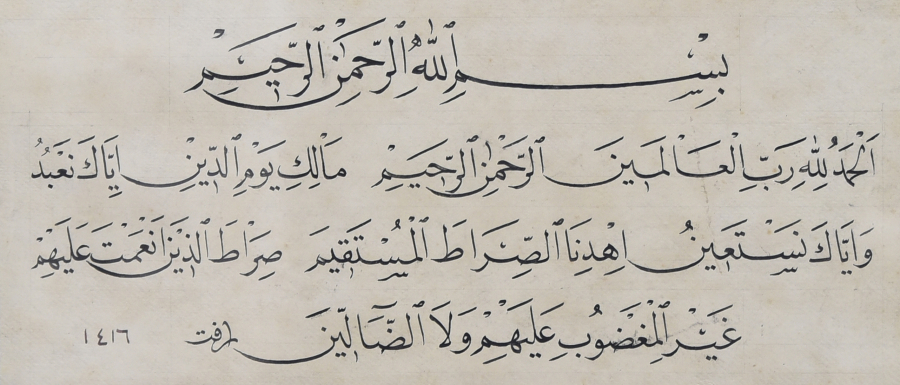 بِسْمِ اللهِ الرَّحْمٰنِ الرَّحِيمِ
اَلْحَمْدُ لِلّٰهِ رَبِّ الْعَالَمِينَ الرَّحْمٰنِ الرَّحِيمِ مَالِكِ يَوْمِ الدِّينِ اِيَّاكَ نَعْبُدُ
وَاِيَّاكَ نَسْتَعِينُ اِهْدِنَا الصِّرَاطَ الْمُسْتَقِيمَ صِرَاطَ الَّذِينَ اَنْعَمْتَ عَلَيْهِمْ
غَيْرِ الْمَغْضُوبِ عَلَيْهِمْ وَلَا الضَّالِّينَ ١٤١٦